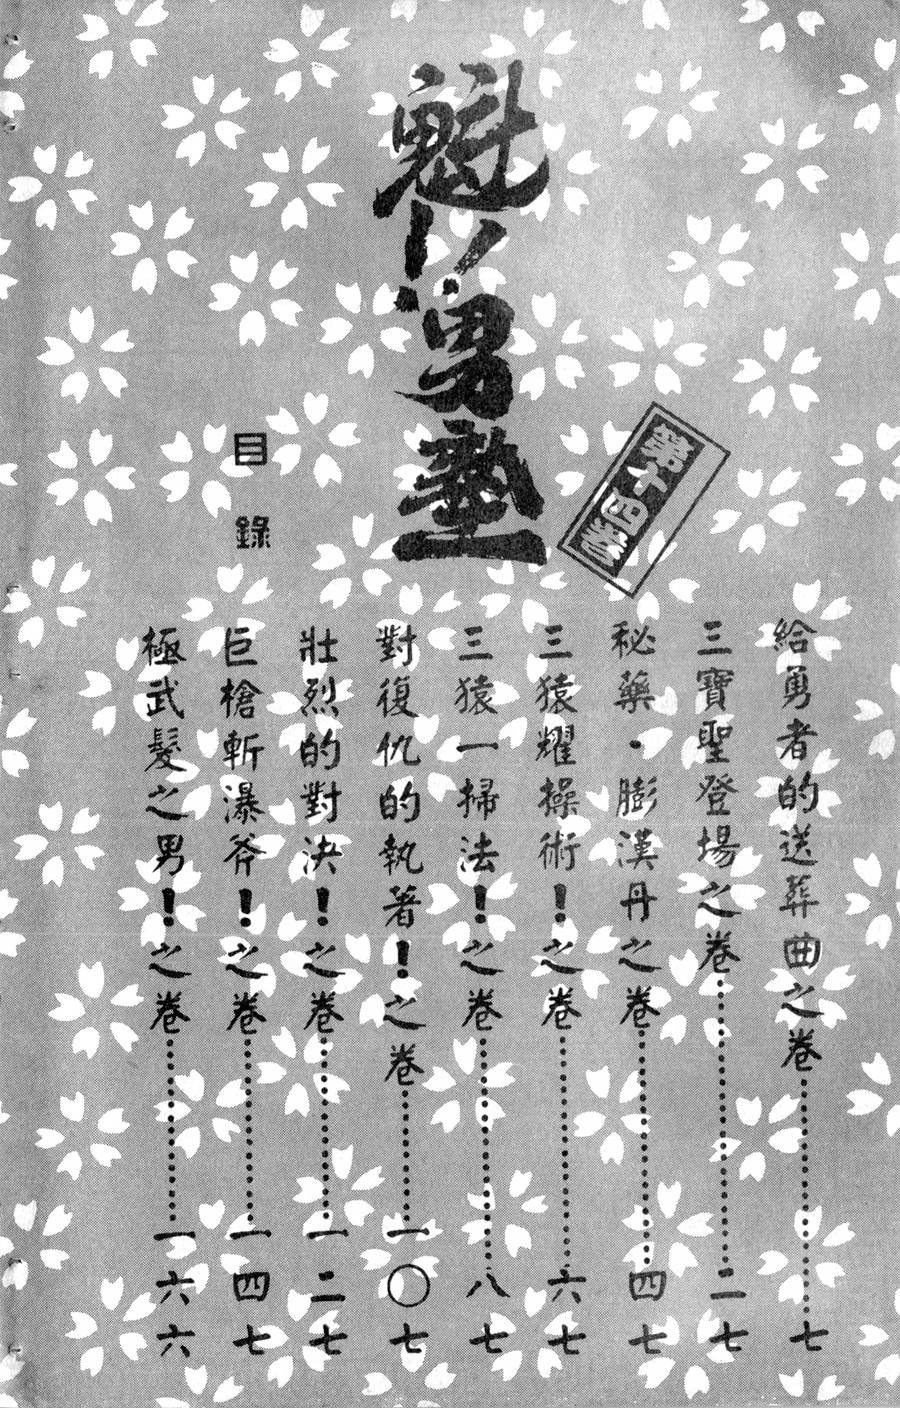 魁!!男塾
第十四卷
目錄
給勇者的送葬曲之卷……七
三寶聖登場之卷……二七
秘藥・膨漢丹之卷……四七
三猿耀操術!之卷……六七
三猿一掃法!之卷……八七
對復仇的執著!之卷……一〇七
壯烈的對決!之卷……一二七
巨槍斬瀑斧!之卷……一四七
極武髮之男!之卷……一六六